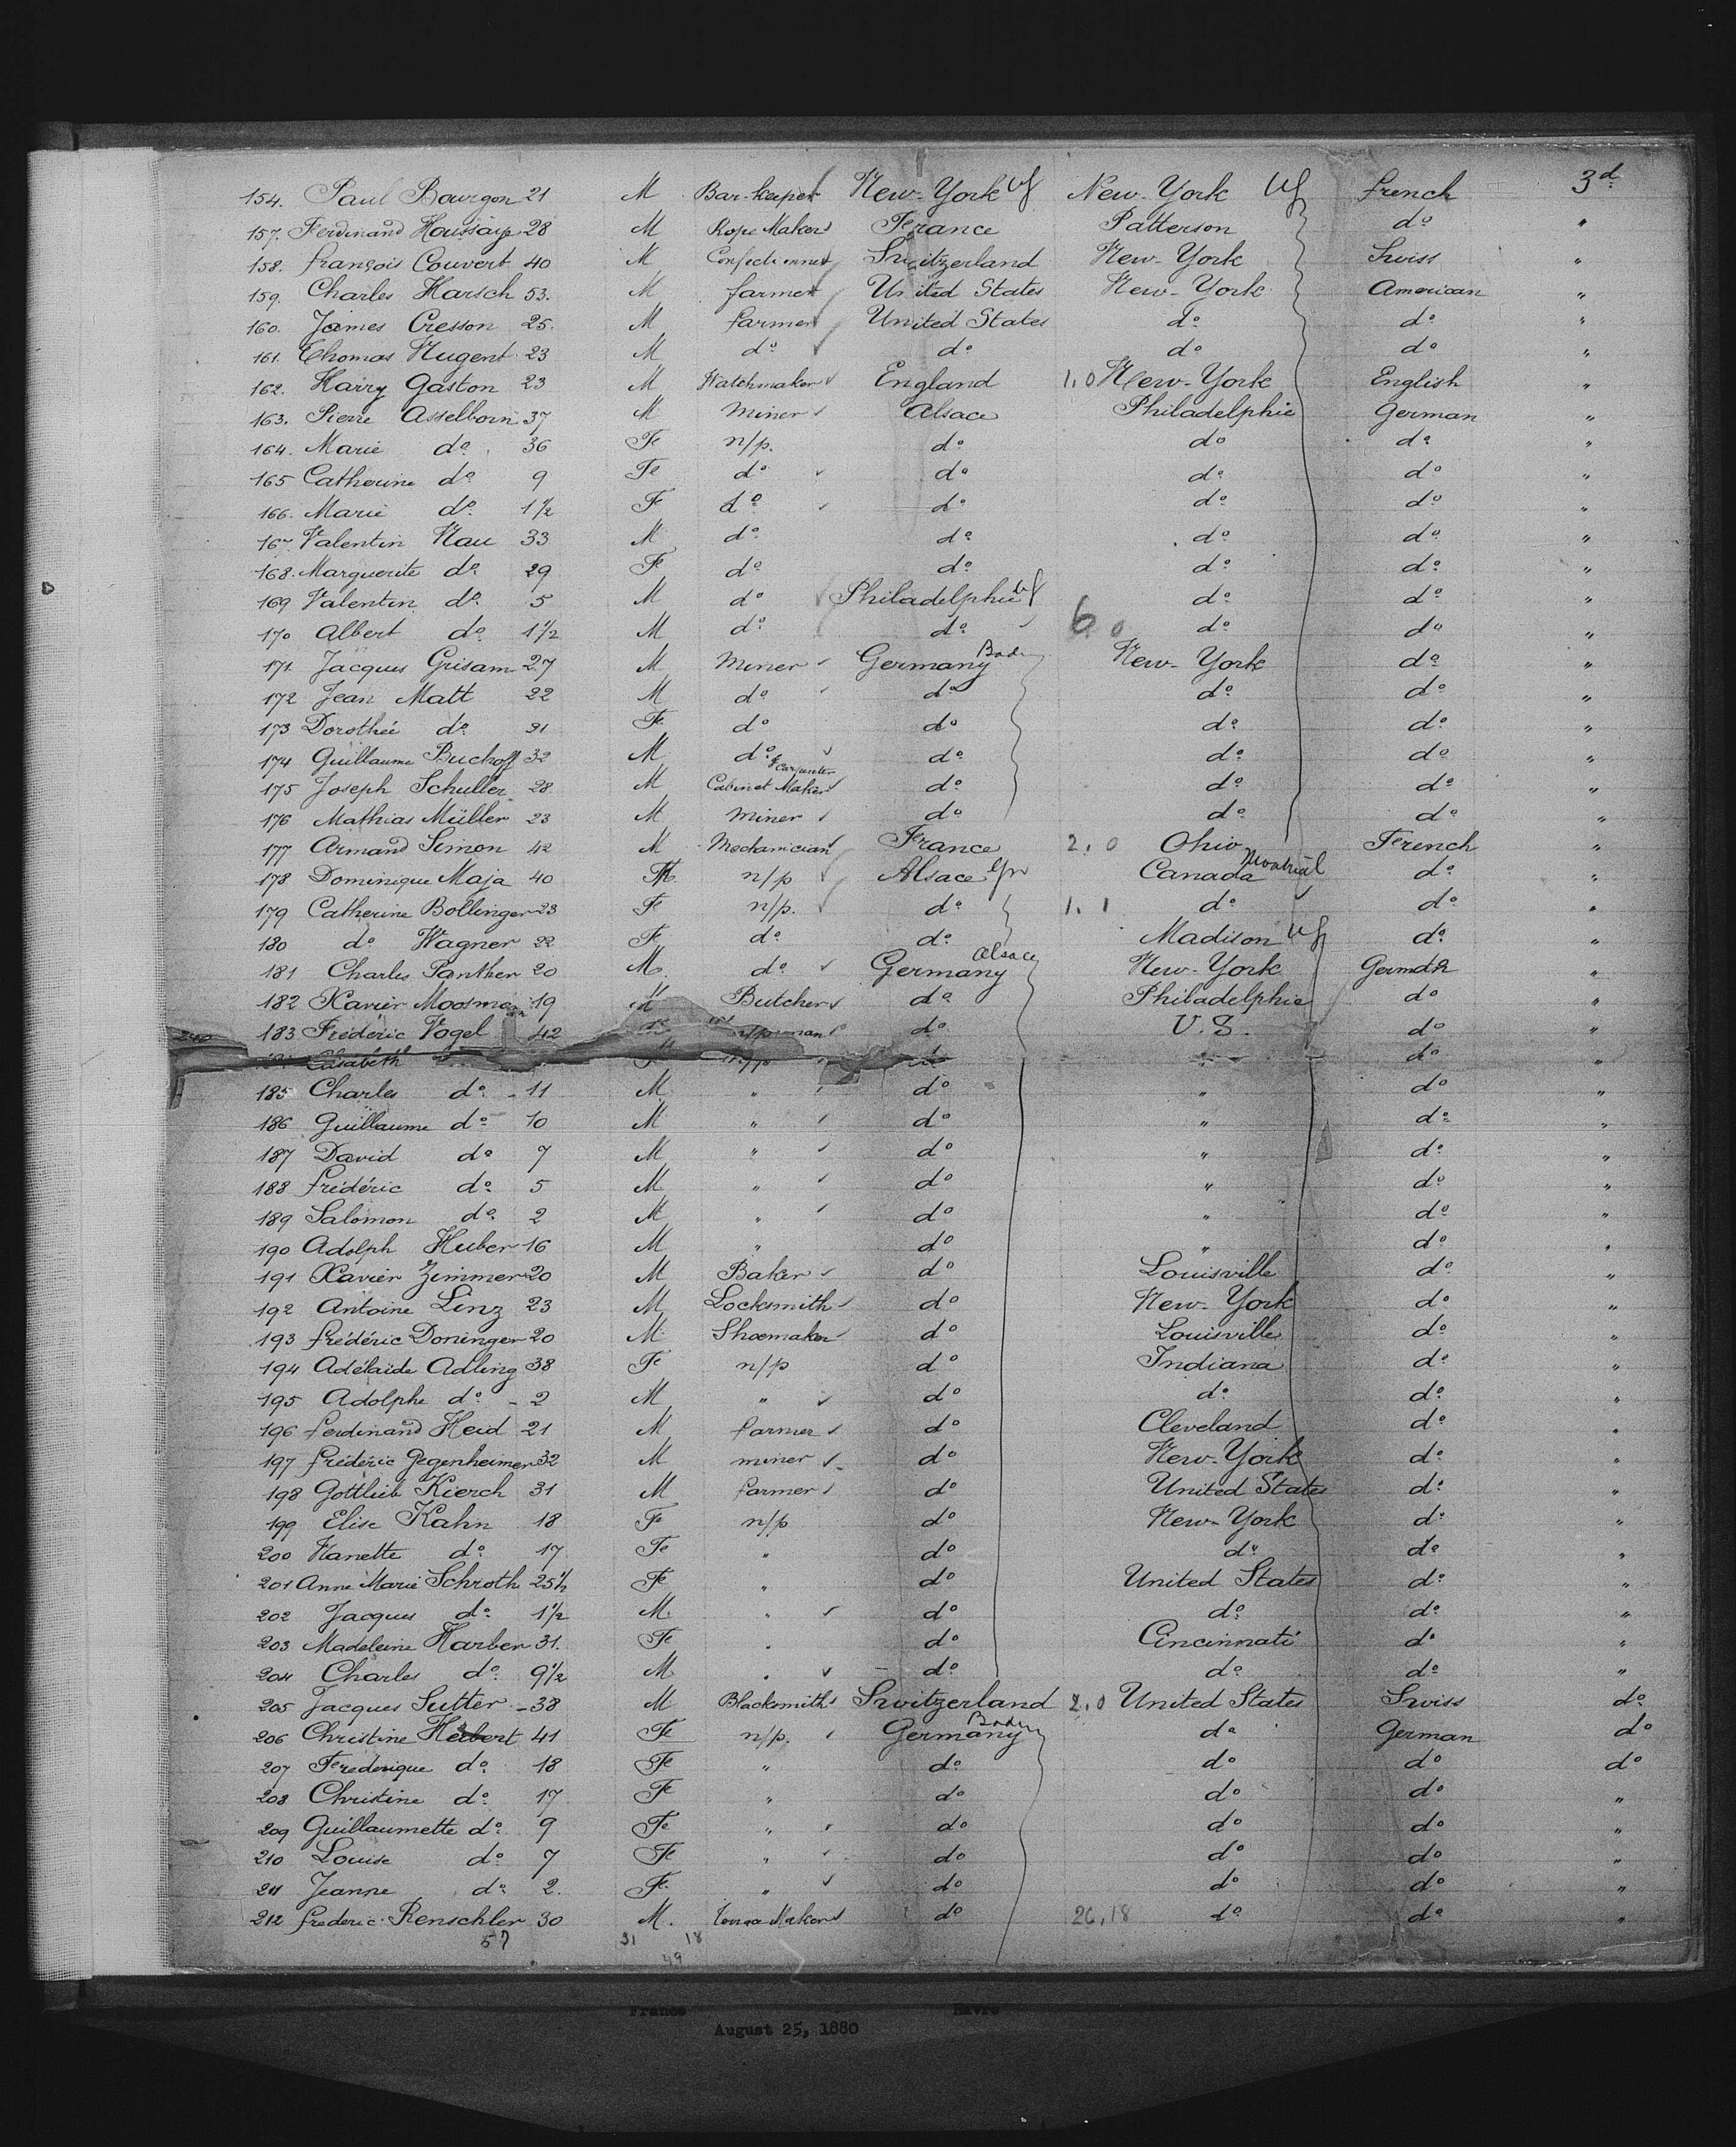 154. Paul Bourgon 21 M Bar-keeper New-York New-York french 3d
157. Ferdinand 28 M Rope Maker France Patterson do "
158. françois Couvert 40 M Confectionner Switzerland New-York Swiss "
159. Charles Harsch 53. M farmer United States New-York American "
160. James Cresson 25. M farmer United States do do "
161. Thomas Nugent 23 M do do do do "
162. Harry Gaston 23 M Watchmaker England 1,0 New-York English "
163. Pierre Asselborn 37 M Miner Alsace Philadelphie German "
164. Marie do 36 Fe n/p. do do do "
165 Catherine do 9 Fe do do do do "
166. Marie do 1 1/2 F do do do do "
167. Valentin Nau 33 M do do do do "
168. Marguerite do 29 F do do do do "
169 Valentin do 5 M do Philadelphie do do "
170 Albert do 1 1/2 M do do 6 0 do do "
171 Jacques Grisam 27 M Miner Germany Bade New-York do "
172 Jean Matt 22 M do do do do "
173 Dorothée do 21 Fe do do do do "
174 Guillaume Buchoff 32 M do do do do "
175 Joseph Schuller 28 M & Carpenter Cabinet Maker do do do "
176 Mathias Müller 23 M Miner do do do "
177 Armand Simon 42 M Mechanician France 2,0 Ohio French "
178 Dominique Maja 40 n/p Alsace Canada Montreal do "
179 Catherine Bollinger 23 Fe n/p. do 1,1 do do "
180 do Wagner 22 Fe do do Madison do "
181 Charles Panther 20 M. do Germany Alsace New-York German "
182 Xavier Moosmann 19 M Butcher do Philadelphie do "
183 Frédéric Vogel 42 do U.S. do "
Elisabeth do "
185 Charles do 11 M " do " do "
186 Guillaume do 10 M " do " do "
187 David do 7 M " do " do "
188 frédéric do 5 M " do " do "
189 Salomon do 2 M " do " do "
190 Adolph Huber 16 M " do " do "
191 Xavier Zimmer 20 M Baker do Louisville do "
192 Antoine Linz 23 M Locksmith do New-York do "
193 frédéric Doninger 20 M Shoemaker do Louisville do "
194 Adélaïde Adling 38 Fe n/p do Indiana do "
195 Adolphe do 2 M " do do do "
196 ferdinand Heid 21 M farmer do Cleveland do "
197 frédéric Gegenheimer 32 M miner do New-York do "
198 Gottlieb Kierch 31 M farmer do United States do "
199 Elise Kahn 18 F n/p do New-York do "
200 Nanette do 17 Fe " do do do "
201 Anne Marie Schroth 25 1/2 Fe " do United States do "
202 Jacques do 1 1/2 M. " do do do "
203 Madeleine Harber 31. Fe " do Cincinnati do "
204 Charles do 9 1/2 M " do do do "
205 Jacques Sutter 38 M Blacksmith Switzerland 2,0 United States Swiss do
206 Christine Hebert 41 Fe n/p. Germany Baden do German do
207 Frederique do 18 Fe " do do do do
208 Christine do 17 Fe " do do do "
209 Guillaumette do 9 Fe " do do do "
210 Louise do 7 Fe " do do do "
211 Jeanne do 2. Fe " do do do "
212 frederic Renschler 30 M. Maker do 26,18 do do "
57 31 18
49
France Havre
August 25, 1880